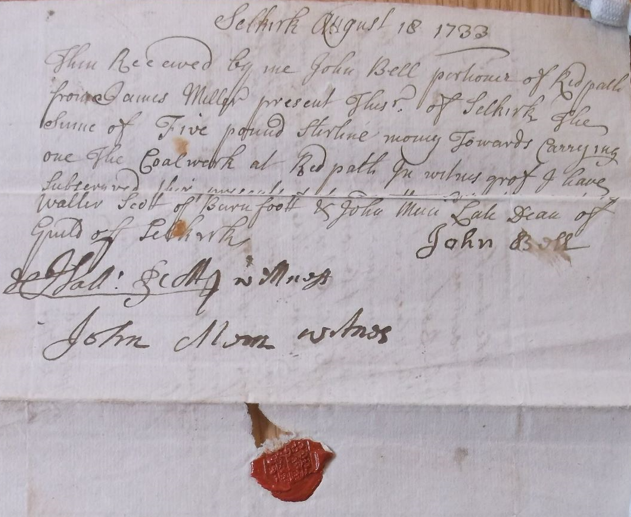 Selkirk August 18 1733
Then Received by me John Bell portioner of Ridpath
from James Miller present Thesr. of Selkirk The
Sume of Five pound Sterline money Towards Carrying
one The Coalwork at Ridpath In witnes qrof I have
Subscrived thir presents
Walter Scott of Burnfoott & John Muir Late Dean off
Guild off Selkirk
John Bell
Wall: Scott witness
John Muir witnes